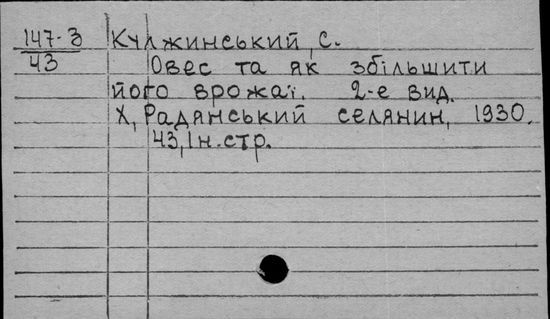 147-3 Кулжинський, С.
43 Овес та як збільшити
його врожаї. 2-е вид.
Х, Радянський селянин, 1930.
43, Ін. стр.